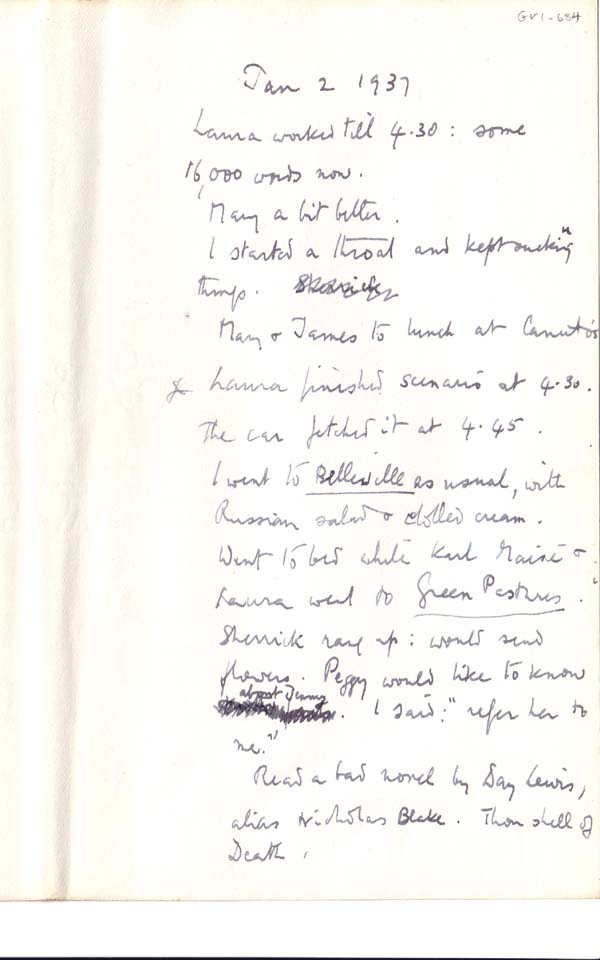 GV1-684
Jan 2 1937
Laura worked till 4.30: some
16,000 words now.
Mary a bit better.
I started a throat and kept sucking
things.
Mary & James to lunch at Canuto's
Laura finished scenario at 4.30.
The car fetched it at 4.45.
I went to Belleville as usual, with
Russian salad & clotted cream.
Went to bed while Karl Maisie &
Laura went to Green Pastures.
Sherrick rang up: would send
flowers. Peggy would like to know
about Jenny. I said: "refer her to
me."
Read a bad novel by Day Lewis,
alias Nicholas Blake. Thou shell of
Death.